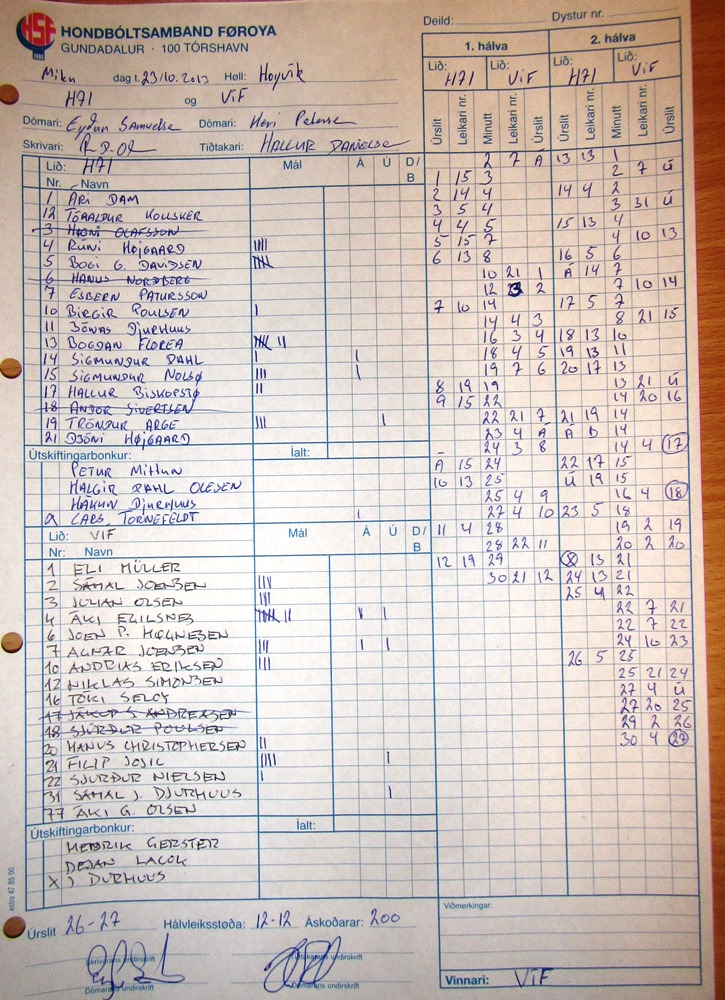 HSF
HONDBÓLTSAMBAND FØROYA
GUNDADALUR · 100 TÓRSHAVN
Deild: Dystur nr.
Miku dag t. 23/10. 2013 Høll: Hoyvík
H71 og VÍF
Dómari: Eyðun Samuelse Dómari: Heri Peterse
Skrivari: Tíðtakari: HALLUR DANIELSE
1. hálva 2. hálva
Lið: H71 Lið: VÍF Lið: H71 Lið: VÍF
Úrslit Leikari nr. Minutt Leikari nr. Úrslit Úrslit Leikari nr. Minutt Leikari nr. Úrslit
Lið: H71 Mál Á Ú D/B
Nr. Navn
1 ARI DAM
12 TÓRALDUR KOLLSKER
3 HØGNI OLAFSSON
4 RÚNI HØJGAARD IIII
5 BOGI G. DAVIDSEN IIIII
6 HANUS NORDBERG
7 ESBERN PATURSSON
10 BIRGIR POULSEN I
11 JÓNAS DJURHUUS
13 BOGDAN FLOREA IIIII II
14 SIGMUNDUR DAHL I I
15 SIGMUNDUR NOLSØ III I
17 HALLUR BISKOPSTØ II
18 ANJOR SIVERTSEN
19 TRÓNDUR ARGE III I
21 DJÓNI HØJGAARD
Útskiftingarbonkur: Íalt:
PETUR Mittun
HALGIR DAHL OLESEN
HÁKUN DJURHUUS
a LARS TORNEFELDT I
Lið: VÍF Mál Á Ú D/B
Nr: Navn
1 ELI MÜLLER
2 SÁMAL JOENSEN III
3 JULIAN OLSEN III
4 ÁKI EGILSNES IIIII IIIII II I I
6 JOEN P. HØGNESEN
7 AGNAR JOENSEN III I I
10 ANDRIAS ERIKSEN III
12 NIKLAS SIMONSEN
16 TÓKI SELOY
17 JÁKUP S ANDREASEN
18 SJÚRÐUR POULSEN
20 HANUS CHRISTOPHERSEN II
21 FILIP JOSIC IIII I
22 SJÚRÐUR NIELSEN I
31 SÁMAL J. DJURHUUS I
77 ÁKI G. OLSEN
Útskiftingarbonkur: Íalt:
HENRIK GERSTER
DEJAN LACOK
X J. DURHUUS
2 7 A 13 13 1
1 15 3 2 7 Ú
2 14 4 14 4 2
3 5 4 3 31 Ú
4 4 5 15 13 4
5 15 7 4 10 13
6 13 8 16 5 6
10 21 1 Á 14 7
12 2 7 10 14
7 10 14 17 5 7
14 4 3 8 21 15
16 3 4 18 13 10
18 4 5 19 13 11
19 7 6 20 17 13
8 19 19 13 21 Ú
9 15 22 14 20 16
22 21 7 21 19 14
23 4 Á Á D 14
24 3 8 14 4 17
A 15 24 22 17 15
10 13 25 Ú 19 15
25 4 9 16 4 18
27 4 10 23 5 18
11 4 28 19 2 19
28 22 11 20 2 20
12 19 29 13 21
30 21 12 24 13 21
25 4 22
22 7 21
22 7 22
24 10 23
26 5 25
25 21 24
27 4 Ú
27 20 25
29 2 26
30 4 27
Úrslit 26-27 Hálvleiksstøða: 12-12 Áskoðarar: 200
Skrivarans undirskrift Tíðtakarans undirskrift
Dómarans undirskrift Dómarans undirskrift
Viðmerkingar:
Vinnari: VÍF
estra 47 85 00